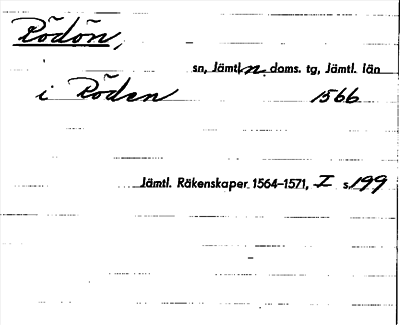 Rödön,
sn, Jämtl. n. doms. tg, Jämtl. län
i Röden 1566
Jämtl. Räkenskaper 1564–1571, I s. 199